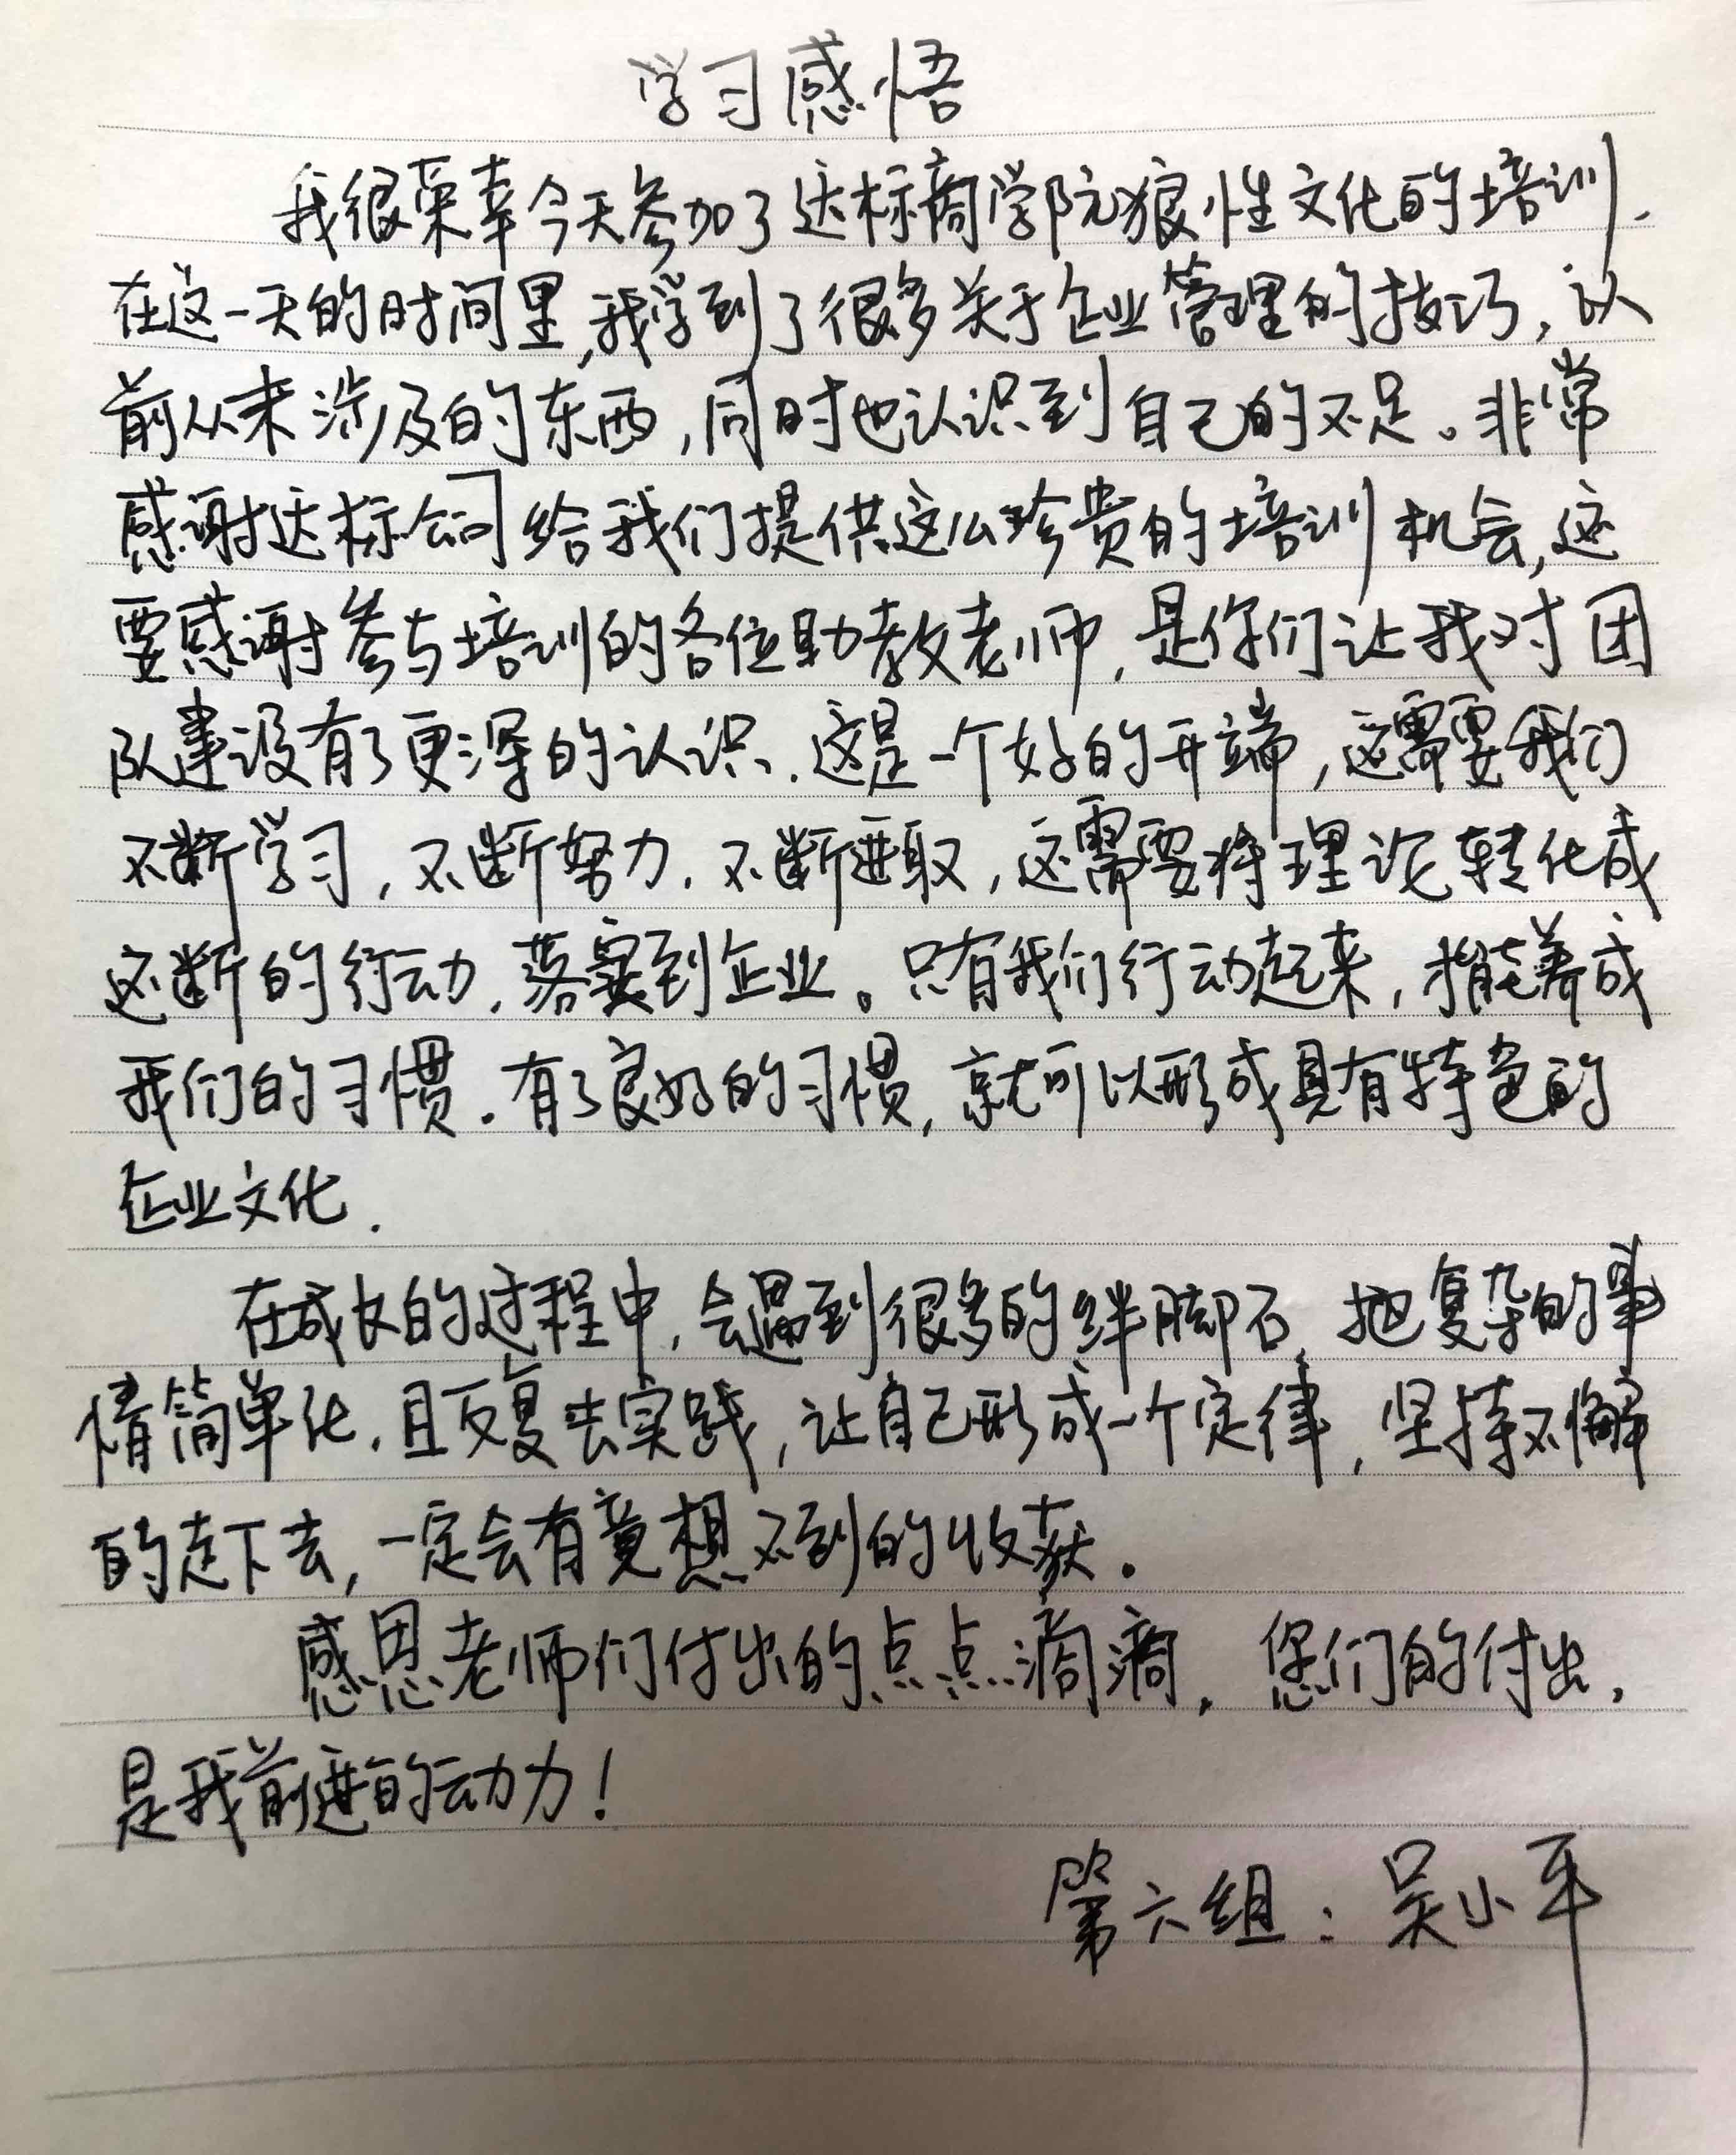 学习感悟
我很荣幸今天参加了达标商学院狼性文化的培训.
在这一天的时间里,我学到了很多关于企业管理的技巧,以
前从未涉及的东西,同时也认识到自己的不足。非常
感谢达标公司给我们提供这么珍贵的培训机会,还
要感谢参与培训的各位助教老师,是你们让我对团
队建设有了更深的认识.这是一个好的开端,还需要我们
不断学习,不断努力.不断进取,还需要将理论转化成
不断的行动,落实到企业。只有我们行动起来,才能养成
我们的习惯.有了良好的习惯,就可以形成具有特色的
企业文化.
在成长的过程中,会遇到很多的绊脚石,把复杂的事
情简单化.且反复去实践,让自己形成一个定律,坚持不懈
的走下去,一定会有意想不到的收获.
感恩老师们付出的点点滴滴,您们的付出,
是我前进的动力!
第六组:吴小平